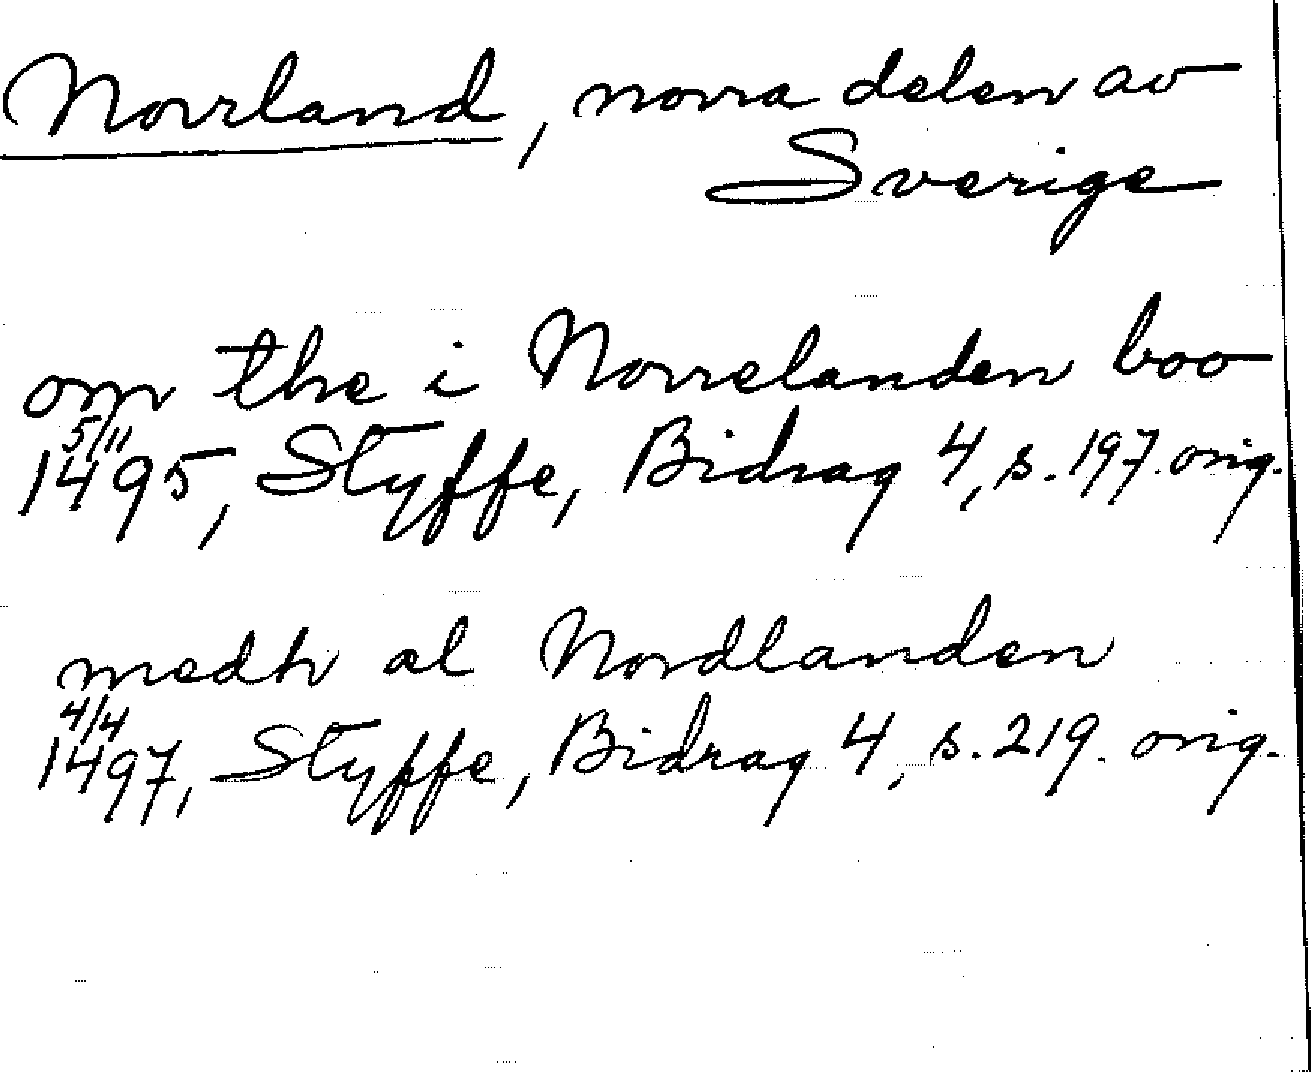 Norrland, norra delen av
Sverige
om the i Norrelanden boo
5/11
1495, Styffe, Bidrag 4, s. 197. orig.
medh al Nordlanden
4/4
1497, Styffe, Bidrag 4, s. 219. orig.